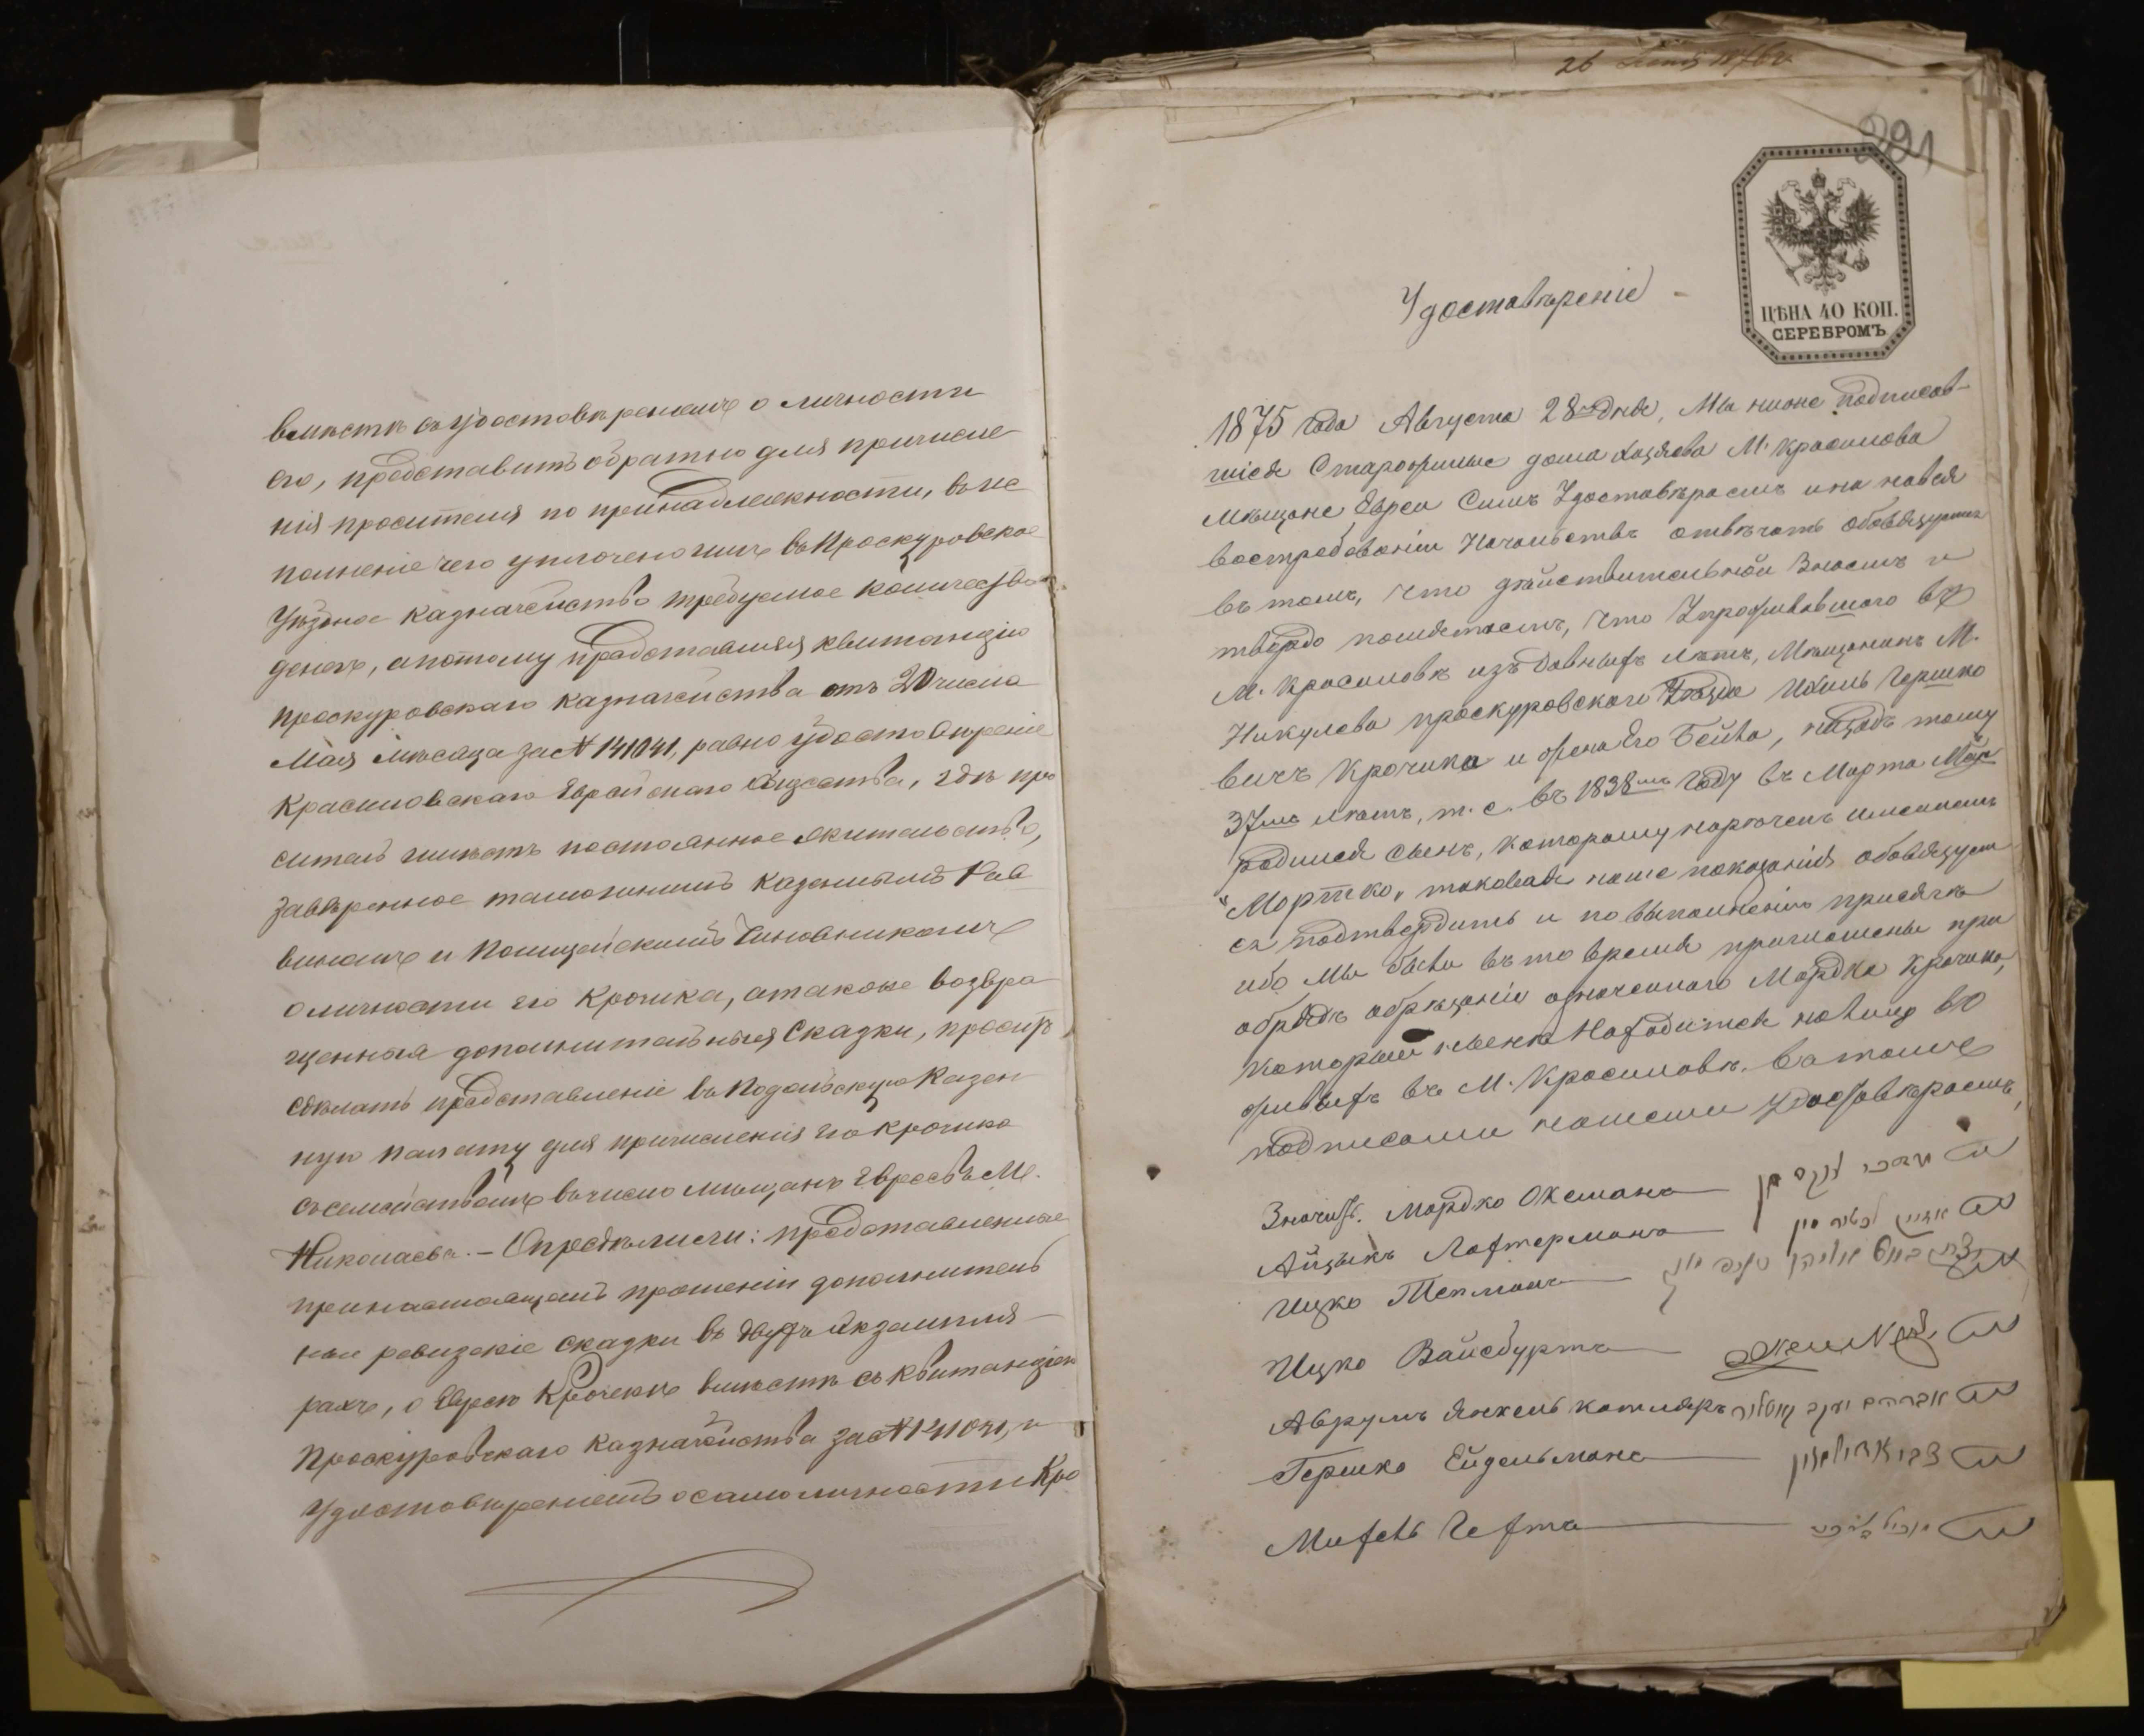 вместѣ съ удостовѣреніемъ о личности
его, представить обратно для причисле
нія просителя по принадлежности, во ис
полненіе чего уплочено имъ въ Проскуровское
Уѣздное Казначейство требуемое количество
денегъ, а потому представляя квитанцію
Проскуровскаго Казначейства отъ 20 числа
Мая мѣсяца за № 141041, равно удостовѣреніе
Красиловскаго Еврейскаго Общества, гдѣ про
ситель имѣетъ постоянное жительство,
завѣренное тамошнимъ Казеннымъ Рав
виномъ и Полицейскимъ Чиновникомъ
о личности его Крочика, а также возвра
щенныя дополнительныя Сказки, проситъ
сдѣлать представленіе въ Подольскую Казен
ную палату для причисленія его Крочика
съ семействомъ въ число мѣщанъ Евреевъ М.
Николаева. – Опредѣлили: представленные
при настоящемъ прошеніи дополнитель
ныя ревизскіе сказки въ двухъ экземпля
рахъ, о Евреѣ Крочикѣ вмѣстѣ съ квитанціею
Проскуровскаго Казначейства за № 141041, и
удостовѣреніемъ о самоличности Кро
26 1876 г.
291
ЦѢНА 40 КОП.
СЕРЕБРОМЪ
Удостовѣреніе
1875 года Августа 28 дня, Мы ниже подписав-
шіеся Старожилые дома хозяева М. Красилова
мѣщане Евреи Симъ Удостовѣряемъ и на навсѣя
востребованіи Начальствъ отвѣчать обовязуемся
въ томъ, что дѣйствительной Знаемъ и
твердо помятаемъ, что Упроживавшаго въ
М. Красиловѣ изъ давныхъ лѣтъ, Мѣщанинъ М.
Никулева проскуровскаго Уѣзда Ихиль Гершко
вичъ Крочика и жена Его Бейла, назадъ тому
37мь лѣтъ, т. е. въ 1838мъ году въ Марта Мѣс
родился сынъ, которому наречень именемъ
"Мортко" таковая наше показанія обовязуем
ся подтвердить и по выполненію присяги
ибо мы были въ то время приглашены при
обрядѣ обрѣзаніи означеннаго Мордка Крочика,
который нынѣ Находится налицо во
живыхъ въ М. Красиловѣ. въ томъ
подписами нашеми удостовѣряемъ,
Значитъ. Мордко Оксмана
Айзыкъ Лахтермана
Ицко Тепмана
Ицко Вайсбурта
Аврумъ Янкель Котляръ אברהם יעקב קאטליר
Гершко Ейдельмана צבי איידילמאן
Михель Гехта